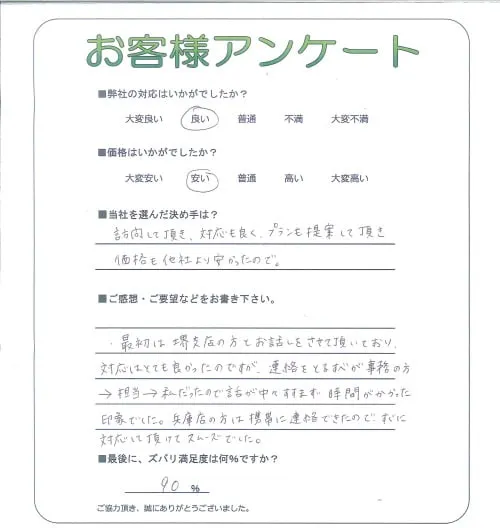 お客様アンケート
■弊社の対応はいかがでしたか？
大変良い 良い 普通 不満 大変不満
■価格はいかがでしたか？
大変安い 安い 普通 高い 大変高い
■当社を選んだ決め手は？
訪問して頂き、対応も良く、プランも提案して頂き
価格も他社より安かったので。
■ご感想・ご要望などをお書き下さい。
・最初は堺支店の方とお話しをさせて頂いており、
対応はとても良かったのですが、連絡をとるすべが事務の方
→担当→私だったので話が中々すすまず時間がかかった
印象でした。兵庫店の方は携帯に連絡できたので、すぐに
対応して頂けてスムーズでした。
■最後に、ズバリ満足度は何%ですか？
90 %
ご協力頂き、誠にありがとうございました。